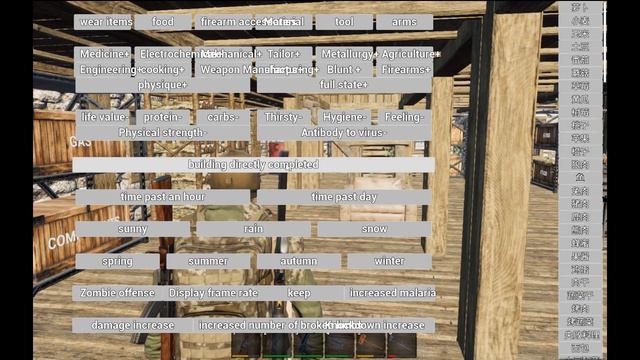 wear items food firearm accessories Material tool arms
Medicine+ Electrochemical+ Mechanical+ Tailor+ Metallurgy+ Agriculture+
Engineering+ cooking+ Weapon Manufacturing+ Blunt + Firearms+
physique+ full state+
life value- protein- carbs- Thirsty- Hygiene- Feeling-
Physical strength- Antibody to virus-
building directly completed
time past an hour time past day
sunny rain snow
spring summer autumn winter
Zombie offense Display frame rate keep increased malaria
damage increase increased number of broken Knockdown increase
GAS
萝卜
小麦
玉米
土豆
草莓
黄瓜
苹果
橙子
鱼
猪肉
鹿肉
熊肉
蜂蜜
果酱
肉干
蔬菜干
烤肉
烤蔬菜
失败料理
面包